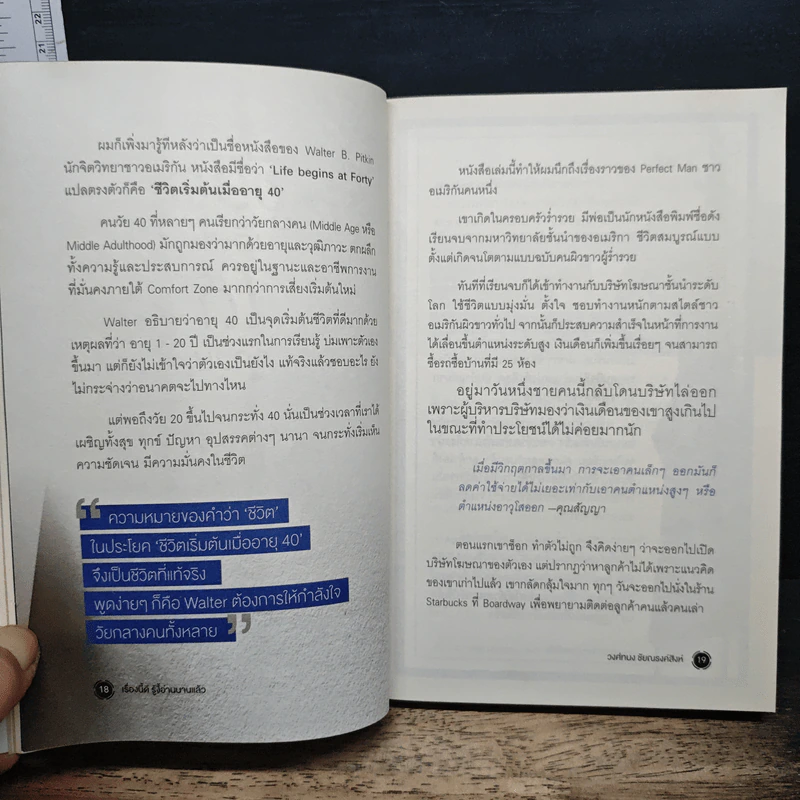 22
21
ผมก็เพิ่งมารู้ทีหลังว่าเป็นชื่อหนังสือของ Walter B. Pitkin
นักจิตวิทยาชาวอเมริกัน หนังสือมีชื่อว่า ‘Life begins at Forty’
แปลตรงตัวก็คือ ‘ชีวิตเริ่มต้นเมื่ออายุ 40’
คนวัย 40 ที่หลายๆ คนเรียกว่าวัยกลางคน (Middle Age หรือ
Middle Adulthood) มักถูกมองว่ามากด้วยอายุและวุฒิภาวะ ตกผลึก
ทั้งความรู้และประสบการณ์ ควรอยู่ในฐานะและอาชีพการงาน
ที่มั่นคงภายใต้ Comfort Zone มากกว่าการเสี่ยงเริ่มต้นใหม่
Walter อธิบายว่าอายุ 40 เป็นจุดเริ่มต้นชีวิตที่ดีมากด้วย
เหตุผลที่ว่า อายุ 1 - 20 ปี เป็นช่วงแรกในการเรียนรู้ บ่มเพาะตัวเอง
ขึ้นมา แต่ก็ยังไม่เข้าใจว่าตัวเองเป็นยังไง แท้จริงแล้วชอบอะไร ยัง
ไม่กระจ่างว่าอนาคตจะไปทางไหน
แต่พอถึงวัย 20 ขึ้นไปจนกระทั่ง 40 นั่นเป็นช่วงเวลาที่เราได้
เผชิญทั้งสุข ทุกข์ ปัญหา อุปสรรคต่างๆ นานา จนกระทั่งเริ่มเห็น
ความชัดเจน มีความมั่นคงในชีวิต
“ ความหมายของคำว่า ‘ชีวิต’
ในประโยค ‘ชีวิตเริ่มต้นเมื่ออายุ 40’
จึงเป็นชีวิตที่แท้จริง
พูดง่ายๆ ก็คือ Walter ต้องการให้กำลังใจ
วัยกลางคนทั้งหลาย ”
18 เรื่องนี้ดี รู้งี้อ่านนานแล้ว
หนังสือเล่มนี้ทำให้ผมนึกถึงเรื่องราวของ Perfect Man ชาว
อเมริกันคนหนึ่ง
เขาเกิดในครอบครัวร่ำรวย มีพ่อเป็นนักหนังสือพิมพ์ชื่อดัง
เรียนจบจากมหาวิทยาลัยชั้นนำของอเมริกา ชีวิตสมบูรณ์แบบ
ตั้งแต่เกิดจนโตตามแบบฉบับคนผิวขาวผู้ร่ำรวย
ทันทีที่เรียนจบก็ได้เข้าทำงานกับบริษัทโฆษณาชั้นนำระดับ
โลก ใช้ชีวิตแบบมุ่งมั่น ตั้งใจ ชอบทำงานหนักตามสไตล์ชาว
อเมริกันผิวขาวทั่วไป จากนั้นก็ประสบความสำเร็จในหน้าที่การงาน
ได้เลื่อนขั้นตำแหน่งระดับสูง เงินเดือนก็เพิ่มขึ้นเรื่อยๆ จนสามารถ
ซื้อรถซื้อบ้านที่มี 25 ห้อง
อยู่มาวันหนึ่งชายคนนี้กลับโดนบริษัทไล่ออก
เพราะผู้บริหารบริษัทมองว่าเงินเดือนของเขาสูงเกินไป
ในขณะที่ทำประโยชน์ได้ไม่ค่อยมากนัก
เมื่อมีวิกฤตกาลขึ้นมา การจะเอาคนเล็กๆ ออกมันก็
ลดค่าใช้จ่ายได้ไม่เยอะเท่ากับเอาคนตำแหน่งสูงๆ หรือ
ตำแหน่งอาวุโสออก –คุณสัญญา
ตอนแรกเขาช็อก ทำตัวไม่ถูก จึงคิดง่ายๆ ว่าจะออกไปเปิด
บริษัทโฆษณาของตัวเอง แต่ปรากฏว่าหาลูกค้าไม่ได้เพราะแนวคิด
ของเขาเก่าไปแล้ว เขากลัดกลุ้มใจมาก ทุกๆ วันจะออกไปนั่งในร้าน
Starbucks ที่ Boardway เพื่อพยายามติดต่อลูกค้าคนแล้วคนเล่า
วงศ์ทนง ชัยณรงค์สิงห์ 19